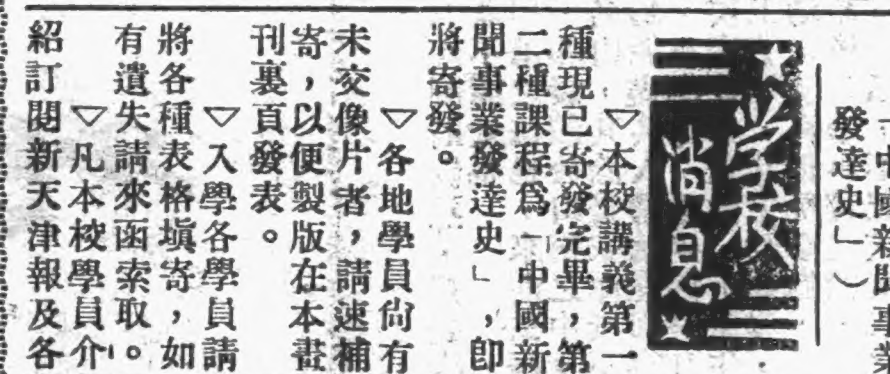 「中國新聞事業
發達史」）
学校
消息
▽本校講義第一
種現已寄發完畢，第
二種課程爲「中國新
聞事業發達史」，卽
將寄發。
▽各地學員尙有
未交像片者，請速補
寄，以便製版在本畫
刊裏頁發表。
▽入學各學員請
將各種表格塡寄，如
有遺失請來函索取。
▽凡本校學員介
紹訂閱新天津報及各